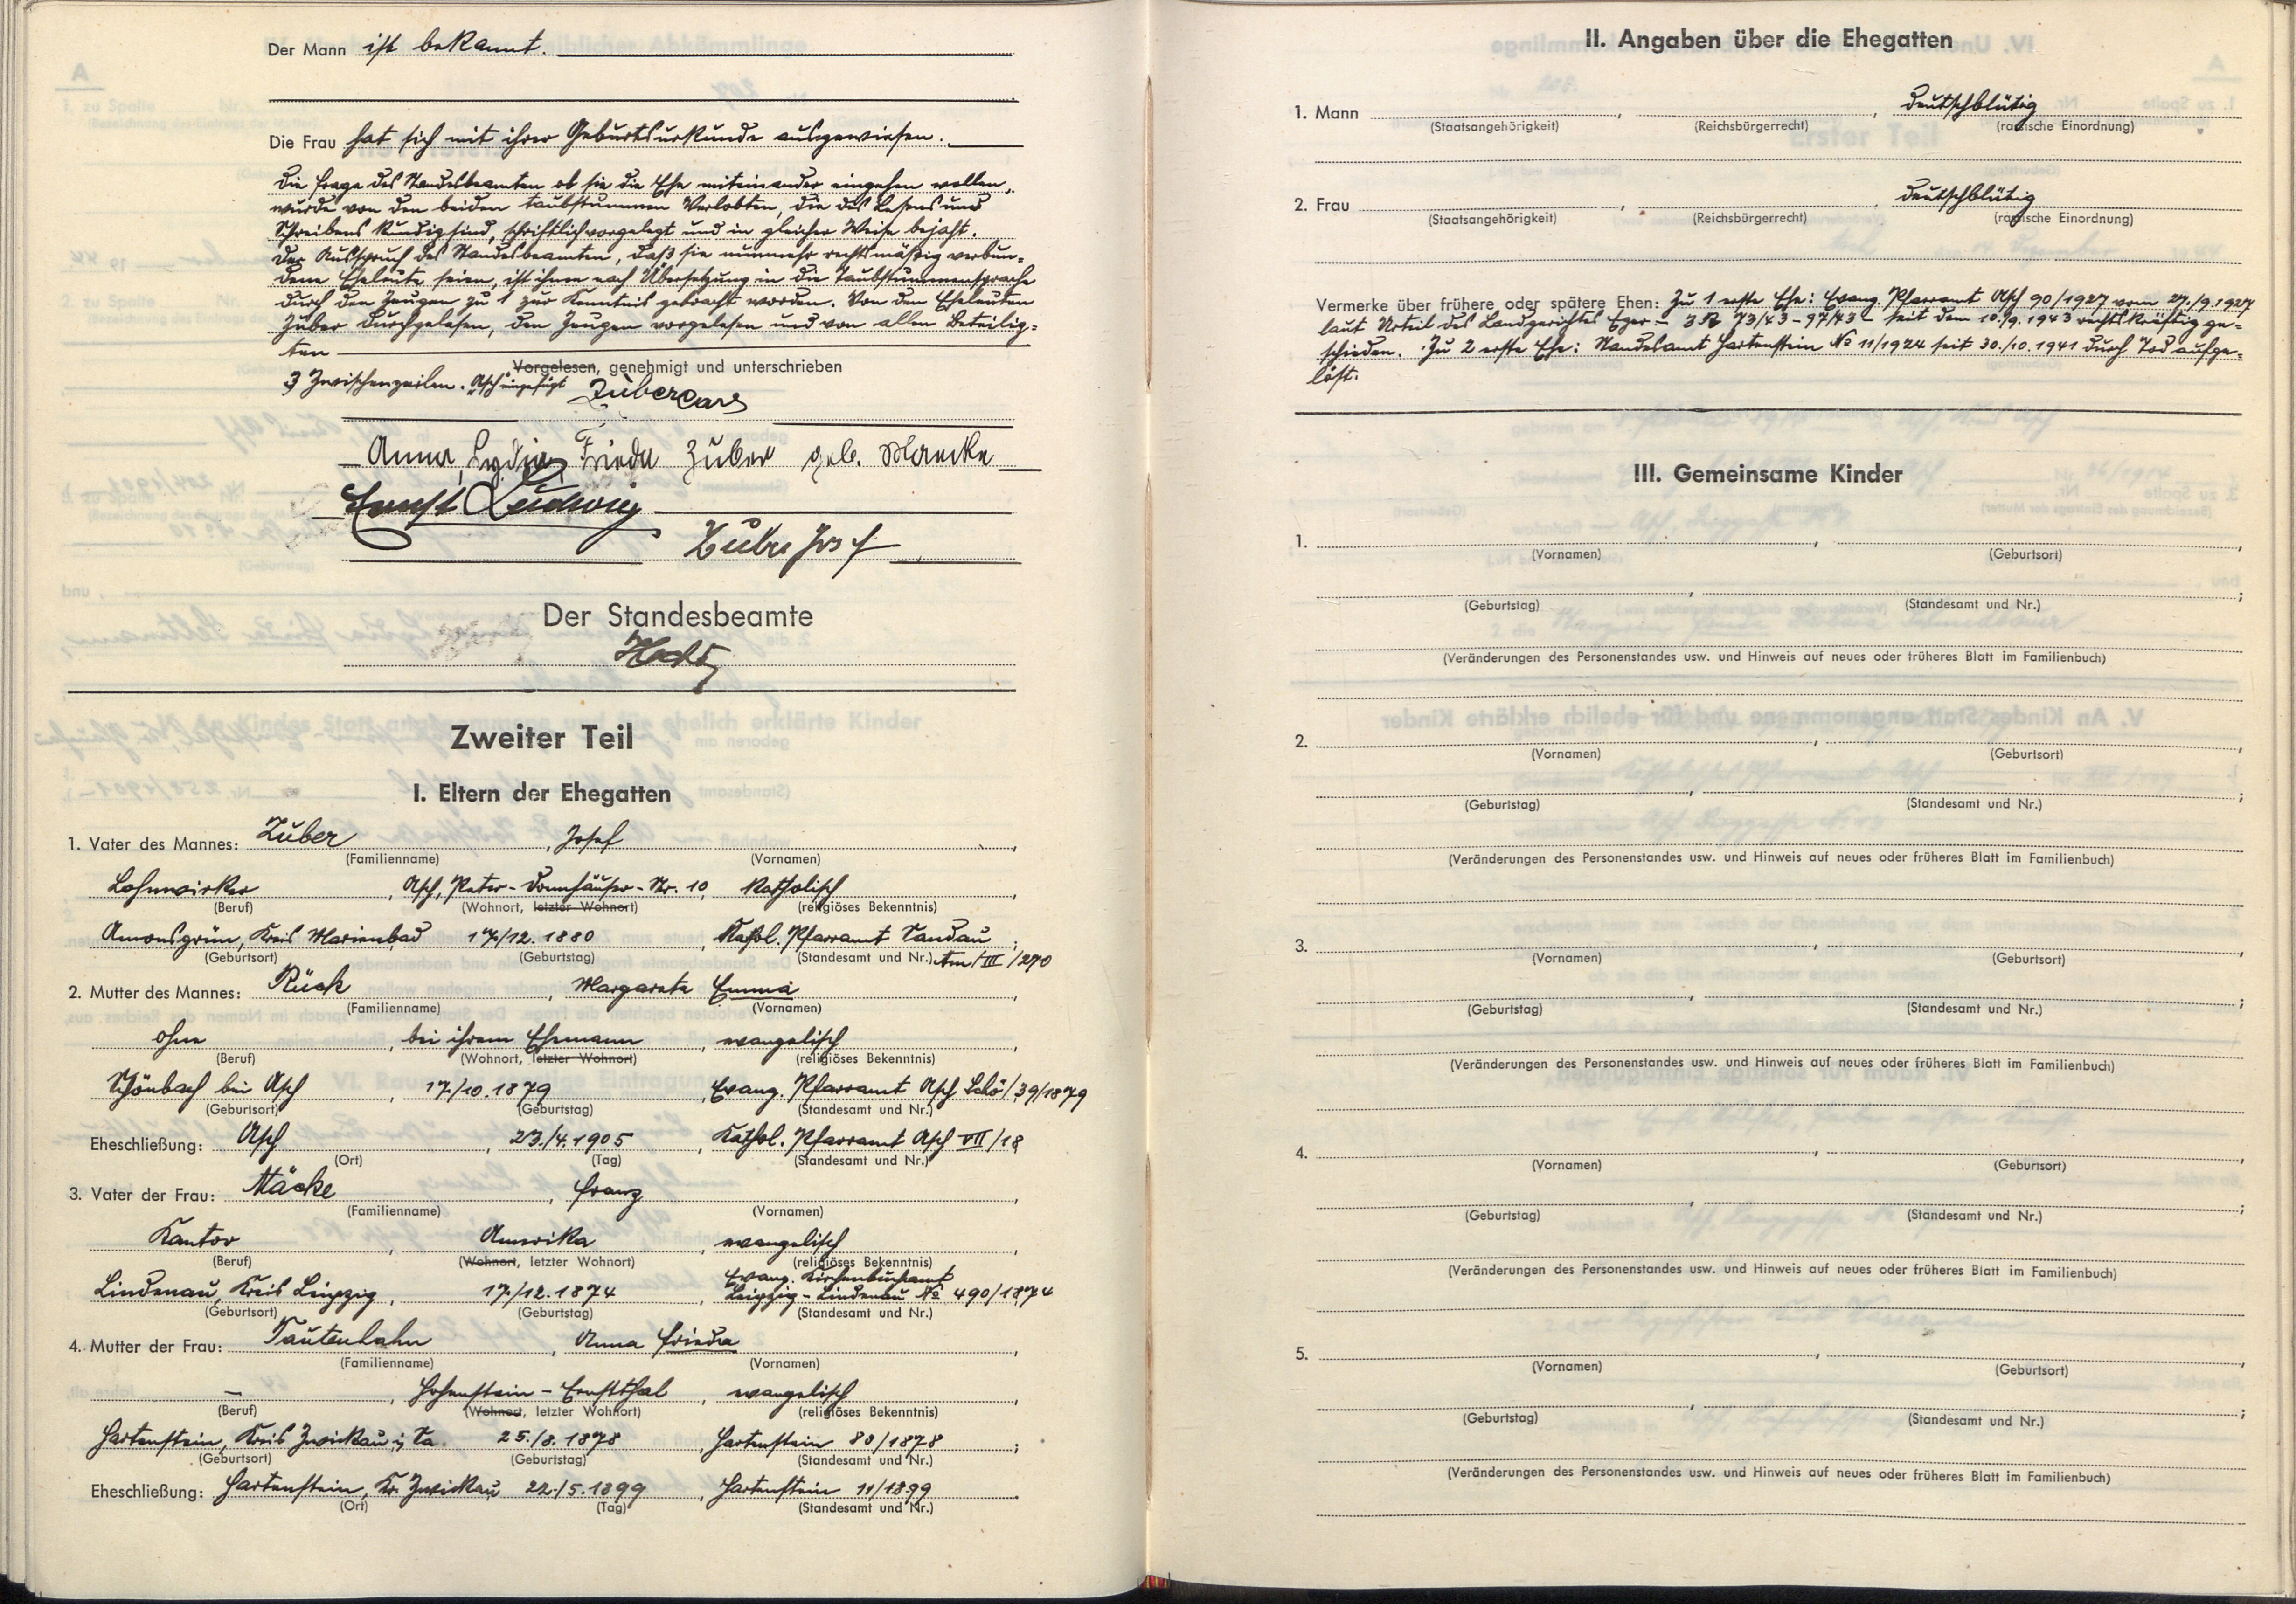 Der Mann ist bekannt.
Die Frau hat sich mit ihrer Geburtsurkunde ausgewiesen.
Die Frage des Standesbeamten, ob sie die Ehe miteinander eingehen wollen,
wurde von den beiden taubstummen Verlobten, die des Lesens und
Schreibens kundig sind, schriftlich vorgelegt und in gleicher Weise bejaht.
Der Ausspruch des Standesbeamten, daß sie nunmehr rechtmäßig verbun-
dene Eheleute seien, ist ihnen nach Übersetzung in die Taubstummensprache
durch den Zeugen zu 1 zur Kenntnis gebracht worden. Von den Eheleuten
Zuber durchgelesen, den Zeugen vorgelesen und von allen Beteilig-
ten
Vorgelesen, genehmigt und unterschrieben
3 Zwischenzeilen. "Asch" eingefügt
Zuber Carl
Anna, Lydia, Frieda Zuber geb. Maecke
Ernst Ludwig
Zuber Josef
Der Standesbeamte
Zweiter Teil
I. Eltern der Ehegatten
1. Vater des Mannes: Zuber, Josef
(Familienname) (Vornamen)
Lohnwirker, Asch, Peter-Donnhäuser-Str. 10 katholisch
(Beruf) (Wohnort, letzter Wohnort) (religiöses Bekenntnis)
Amonsgrün, Kreis Marienbad 17./12. 1880, Kathol. Pfarramt Sandau
(Geburtsort) (Geburtstag) (Standesamt und Nr.) Am/III/270
2. Mutter des Mannes: Rück, Margareta Emma
(Familienname) (Vornamen)
ohne, bei ihrem Ehemann, evangelisch
(Beruf) (Wohnort, letzter Wohnort) (religiöses Bekenntnis)
Schönbach bei Asch, 17./10. 1879, Evang. Pfarramt Asch Schö/39/1879
(Geburtsort) (Geburtstag) (Standesamt und Nr.)
Eheschließung: Asch, 23./4. 1905, Kathol. Pfarramt Asch VII/18
(Ort) (Tag) (Standesamt und Nr.)
3. Vater der Frau: Mäcke, Franz
(Familienname) (Vornamen)
Kantor, Amerika, evangelisch
(Beruf) (Wohnort, letzter Wohnort) (religiöses Bekenntnis)
Evang. Kirchenbuchamt
Lindenau, Kreis Leipzig, 17./12. 1874, Leipzig-Lindenau No 490/1874
(Geburtsort) (Geburtstag) (Standesamt und Nr.)
4. Mutter der Frau: Tautenhahn, Anna Frieda
(Familienname) (Vornamen)
—, Hohenstein-Ernstthal, evangelisch
(Beruf) (Wohnort, letzter Wohnort) (religiöses Bekenntnis)
Hartenstein, Kreis Zwickau i. Sa. 25./8. 1878, Hartenstein 80/1878;
(Geburtsort) (Geburtstag) (Standesamt und Nr.)
Eheschließung: Hartenstein, Kr. Zwickau 22./5. 1899, Hartenstein 11/1899
(Ort) (Tag) (Standesamt und Nr.)
II. Angaben über die Ehegatten
1. Mann, , deutschblütig
(Staatsangehörigkeit) (Reichsbürgerrecht) (rassische Einordnung)
2. Frau, , deutschblütig
(Staatsangehörigkeit) (Reichsbürgerrecht) (rassische Einordnung)
Vermerke über frühere oder spätere Ehen: Zu 1 erste Ehe: Evang. Pfarramt Asch 90/1927 vom 27./9. 1927
laut Urteil des Landgerichtes Eger - 3 R 73/43 - 97/43 - seit dem 10./9. 1943 rechtskräftig ge-
schieden. Zu 2 erste Ehe: Standesamt Hartenstein No 11/1924 seit 30./10. 1941 durch Tod aufge-
löst.
III. Gemeinsame Kinder
1.
(Vornamen) (Geburtsort)
(Geburtstag) (Standesamt und Nr.)
(Veränderungen des Personenstandes usw. und Hinweis auf neues oder früheres Blatt im Familienbuch)
2.
(Vornamen) (Geburtsort)
(Geburtstag) (Standesamt und Nr.)
(Veränderungen des Personenstandes usw. und Hinweis auf neues oder früheres Blatt im Familienbuch)
3.
(Vornamen) (Geburtsort)
(Geburtstag) (Standesamt und Nr.)
(Veränderungen des Personenstandes usw. und Hinweis auf neues oder früheres Blatt im Familienbuch)
4.
(Vornamen) (Geburtsort)
(Geburtstag) (Standesamt und Nr.)
(Veränderungen des Personenstandes usw. und Hinweis auf neues oder früheres Blatt im Familienbuch)
5.
(Vornamen) (Geburtsort)
(Geburtstag) (Standesamt und Nr.)
(Veränderungen des Personenstandes usw. und Hinweis auf neues oder früheres Blatt im Familienbuch)